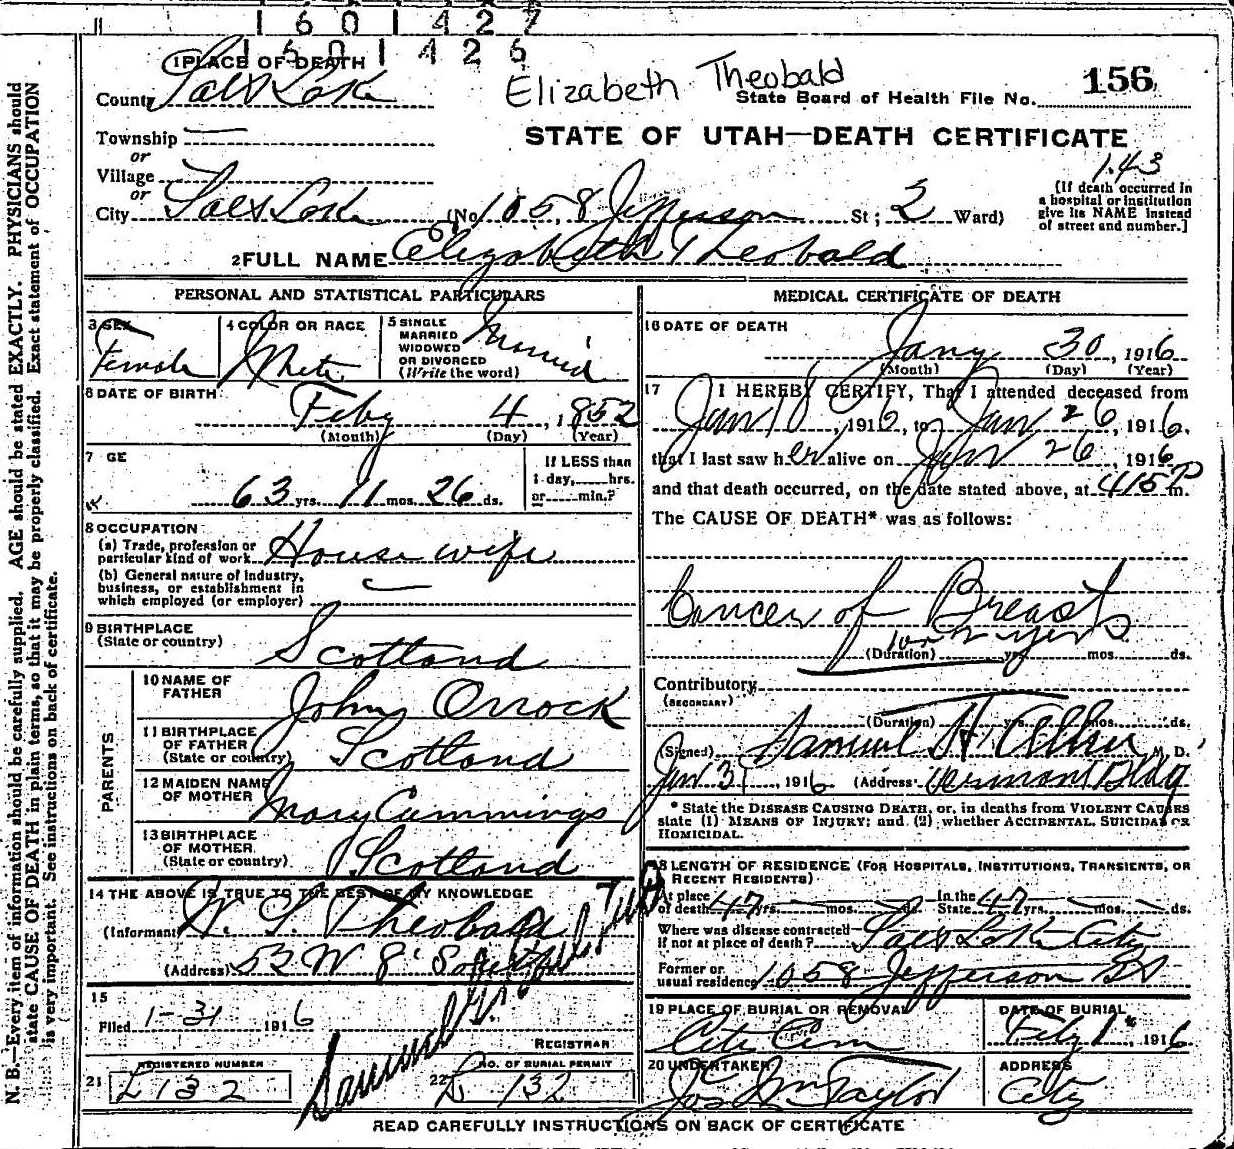 1601427
1601426
1 PLACE OF DEATH
County Salt Lake
Elizabeth Theobald
State Board of Health File No. 156
Township
or
Village
or
STATE OF UTAH—DEATH CERTIFICATE
143
(If death occurred in
a hospital or institution
give its NAME instead
of street and number.]
City Salt Lake (No. 1058 Jefferson St; 2 Ward)
2 FULL NAME Elizabeth Theobald
PERSONAL AND STATISTICAL PARTICULARS
3 SEX
Female
4 COLOR OR RACE
White
5 SINGLE
MARRIED
WIDOWED
OR DIVORCED
(Write the word)
Married
6 DATE OF BIRTH
Feby 4, 1852
(Month) (Day) (Year)
7 GE
63 yrs. 11 mos. 26 ds.
If LESS than
1 day, hrs.
or min.?
8 OCCUPATION
(a) Trade, profession or
particular kind of work House wife
(b) General nature of industry,
business, or establishment in
which employed (or employer)
9 BIRTHPLACE
(State or country) Scotland
PARENTS
10 NAME OF
FATHER John Orrock
11 BIRTHPLACE
OF FATHER
(State or country) Scotland
12 MAIDEN NAME
OF MOTHER Mary Cummings
13 BIRTHPLACE
OF MOTHER
(State or country) Scotland
14 THE ABOVE IS TRUE TO THE BEST OF MY KNOWLEDGE
(Informant) Theobald
(Address) 53 W 8
15
Filed 1-31 1916
REGISTRAR
21 REGISTERED NUMBER
L 132
22 NO. OF BURIAL PERMIT
132
MEDICAL CERTIFICATE OF DEATH
16 DATE OF DEATH
Jany 30, 1916
(Month) (Day) (Year)
17 I HEREBY CERTIFY, That I attended deceased from
Jan 18, 1916, to Jan 26, 1916,
that I last saw her alive on Jan 26, 1916
and that death occurred, on the date stated above, at 415 P m.
The CAUSE OF DEATH* was as follows:
Cancer of Breast
(Duration) yrs. mos. ds.
Contributory
(SECONDARY)
(Duration) yrs. mos. ds.
(Signed) Samuel H. Allen M. D.
Jan 31, 1916 (Address) Vermont Bldg
* State the DISEASE CAUSING DEATH, or, in deaths from VIOLENT CAUSES
state (1) MEANS OF INJURY; and (2) whether ACCIDENTAL, SUICIDAL OR
HOMICIDAL.
18 LENGTH OF RESIDENCE (FOR HOSPITALS, INSTITUTIONS, TRANSIENTS, OR
RECENT RESIDENTS)
At place
of death 47 yrs. mos. ds. In the
State 47 yrs. mos. ds.
Where was disease contracted
if not at place of death? Salt Lake City
Former or
usual residence 1058 Jefferson St
19 PLACE OF BURIAL OR REMOVAL
City Cem
DATE OF BURIAL
Feby 1, 1916
20 UNDERTAKER
Jos Wm Taylor
ADDRESS
City
READ CAREFULLY INSTRUCTIONS ON BACK OF CERTIFICATE
N. B.—Every item of information should be carefully supplied. AGE should be stated EXACTLY. PHYSICIANS should
state CAUSE OF DEATH in plain terms, so that it may be properly classified. Exact statement of OCCUPATION
is very important. See instructions on back of certificate.